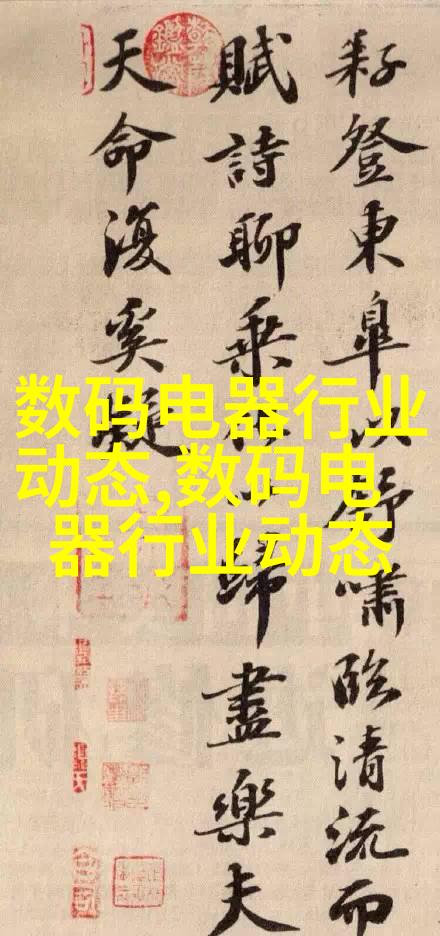 耔登東皋以舒嘯臨清流而
賦詩聊乗化以歸盡樂夫
天命復奚疑
数码电器行业
动态,数码电
器行业动态